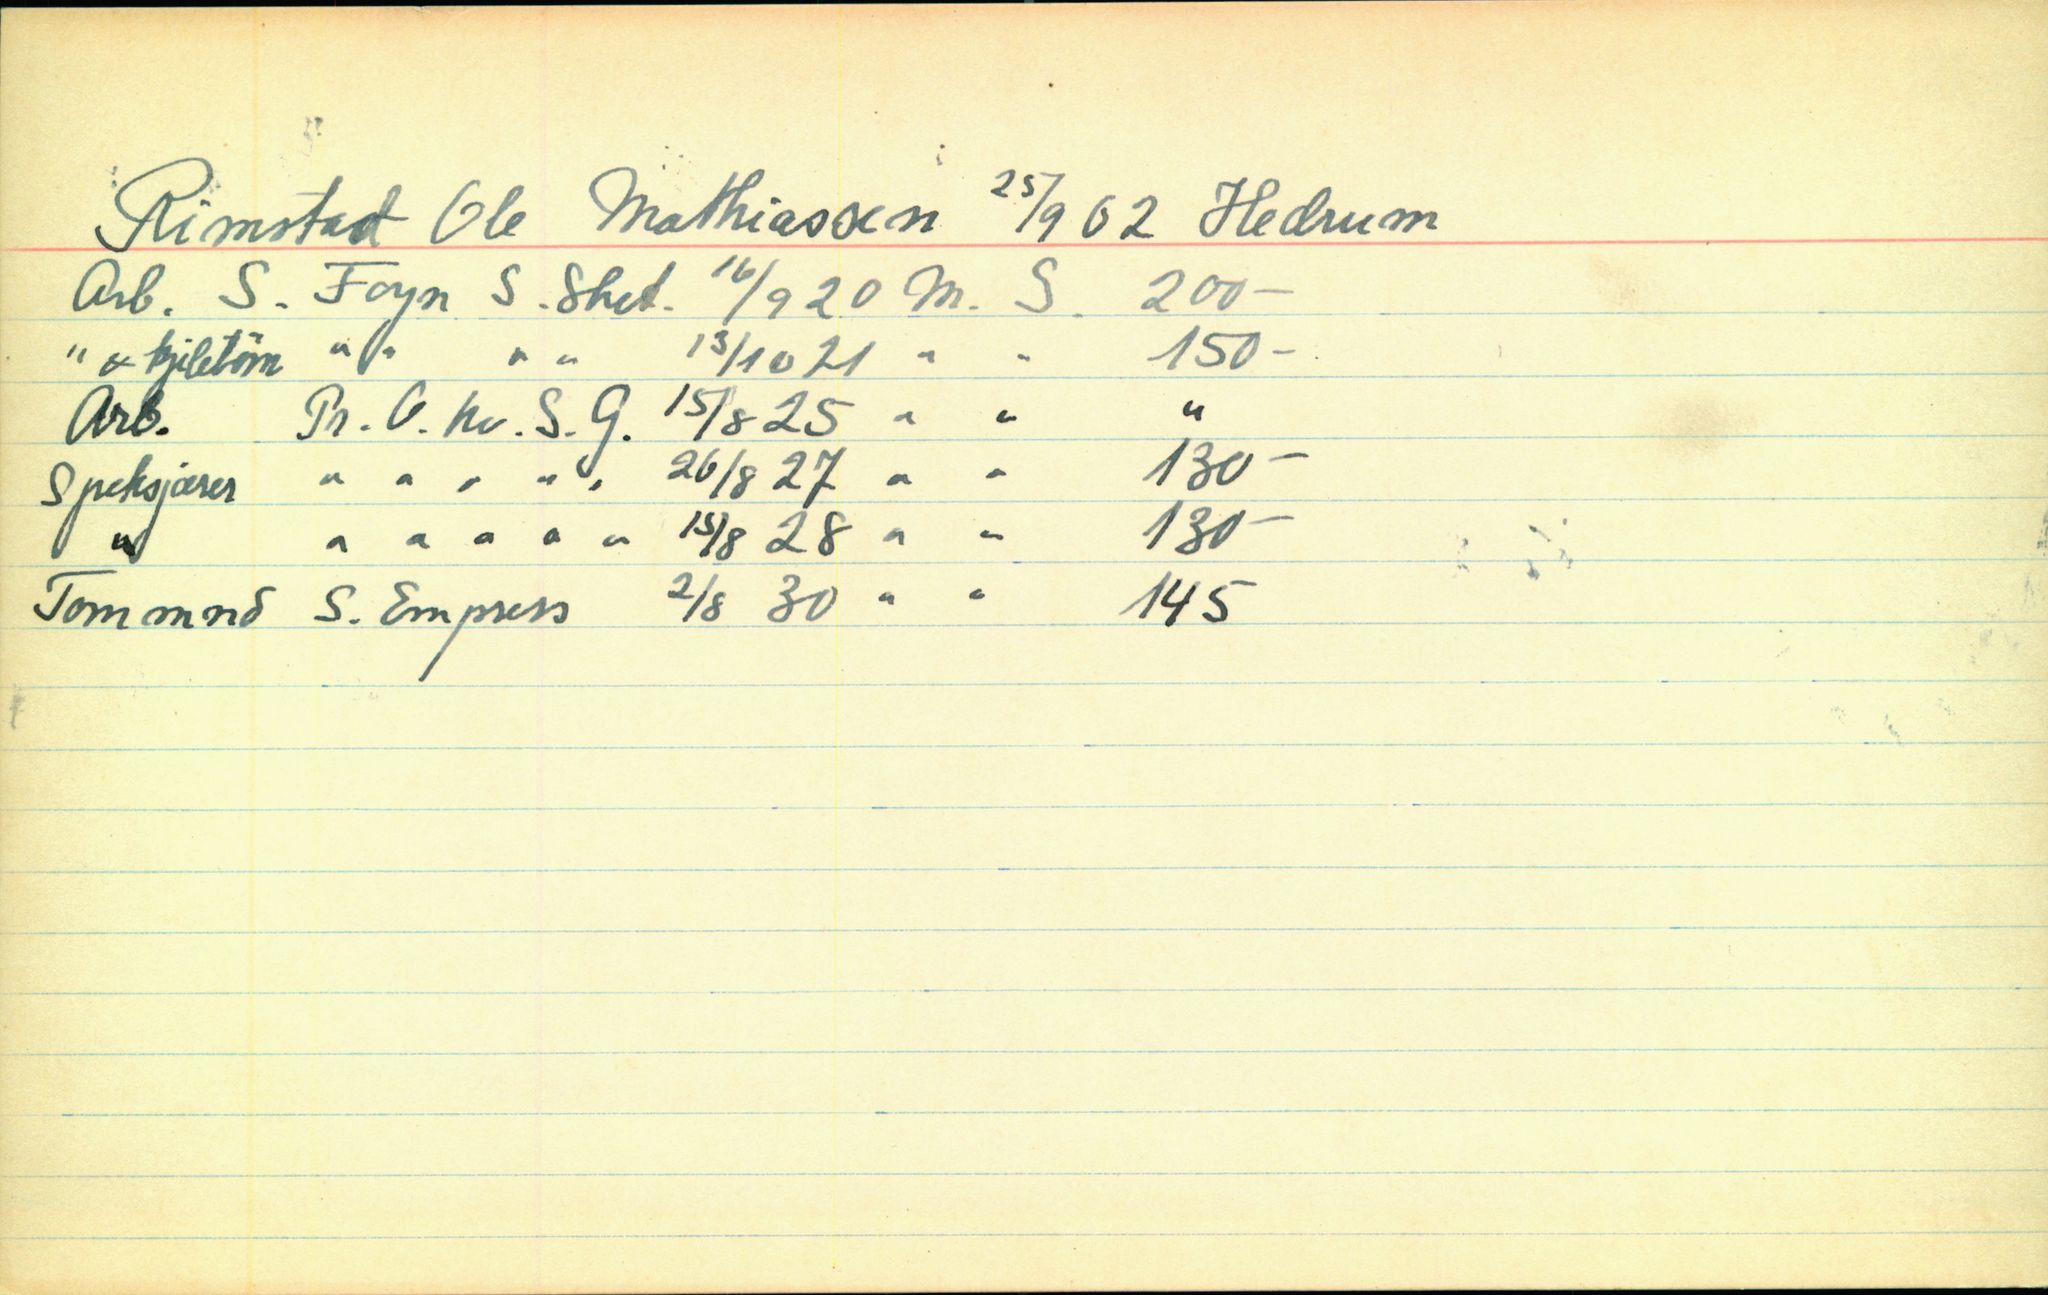 Rimstad Ole Mathiassen 25/9 02 Hedrum
Arb. S. Foyn S. Shet. 16/9 20 M. S. 200-
" & kjeletöm " " " " 13/10 21 " " 150-
Arb. Pr. O. Kv. S. G. 15/8 25 " " "
Speksjærer " " " " " 26/8 27 " " 130-
" " " " " " 15/8 28 " " 130-
Tommnd S. Empress 2/8 30 " " 145